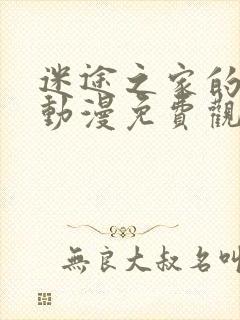 迷途之家的
動漫免費觀
無良大叔名叫